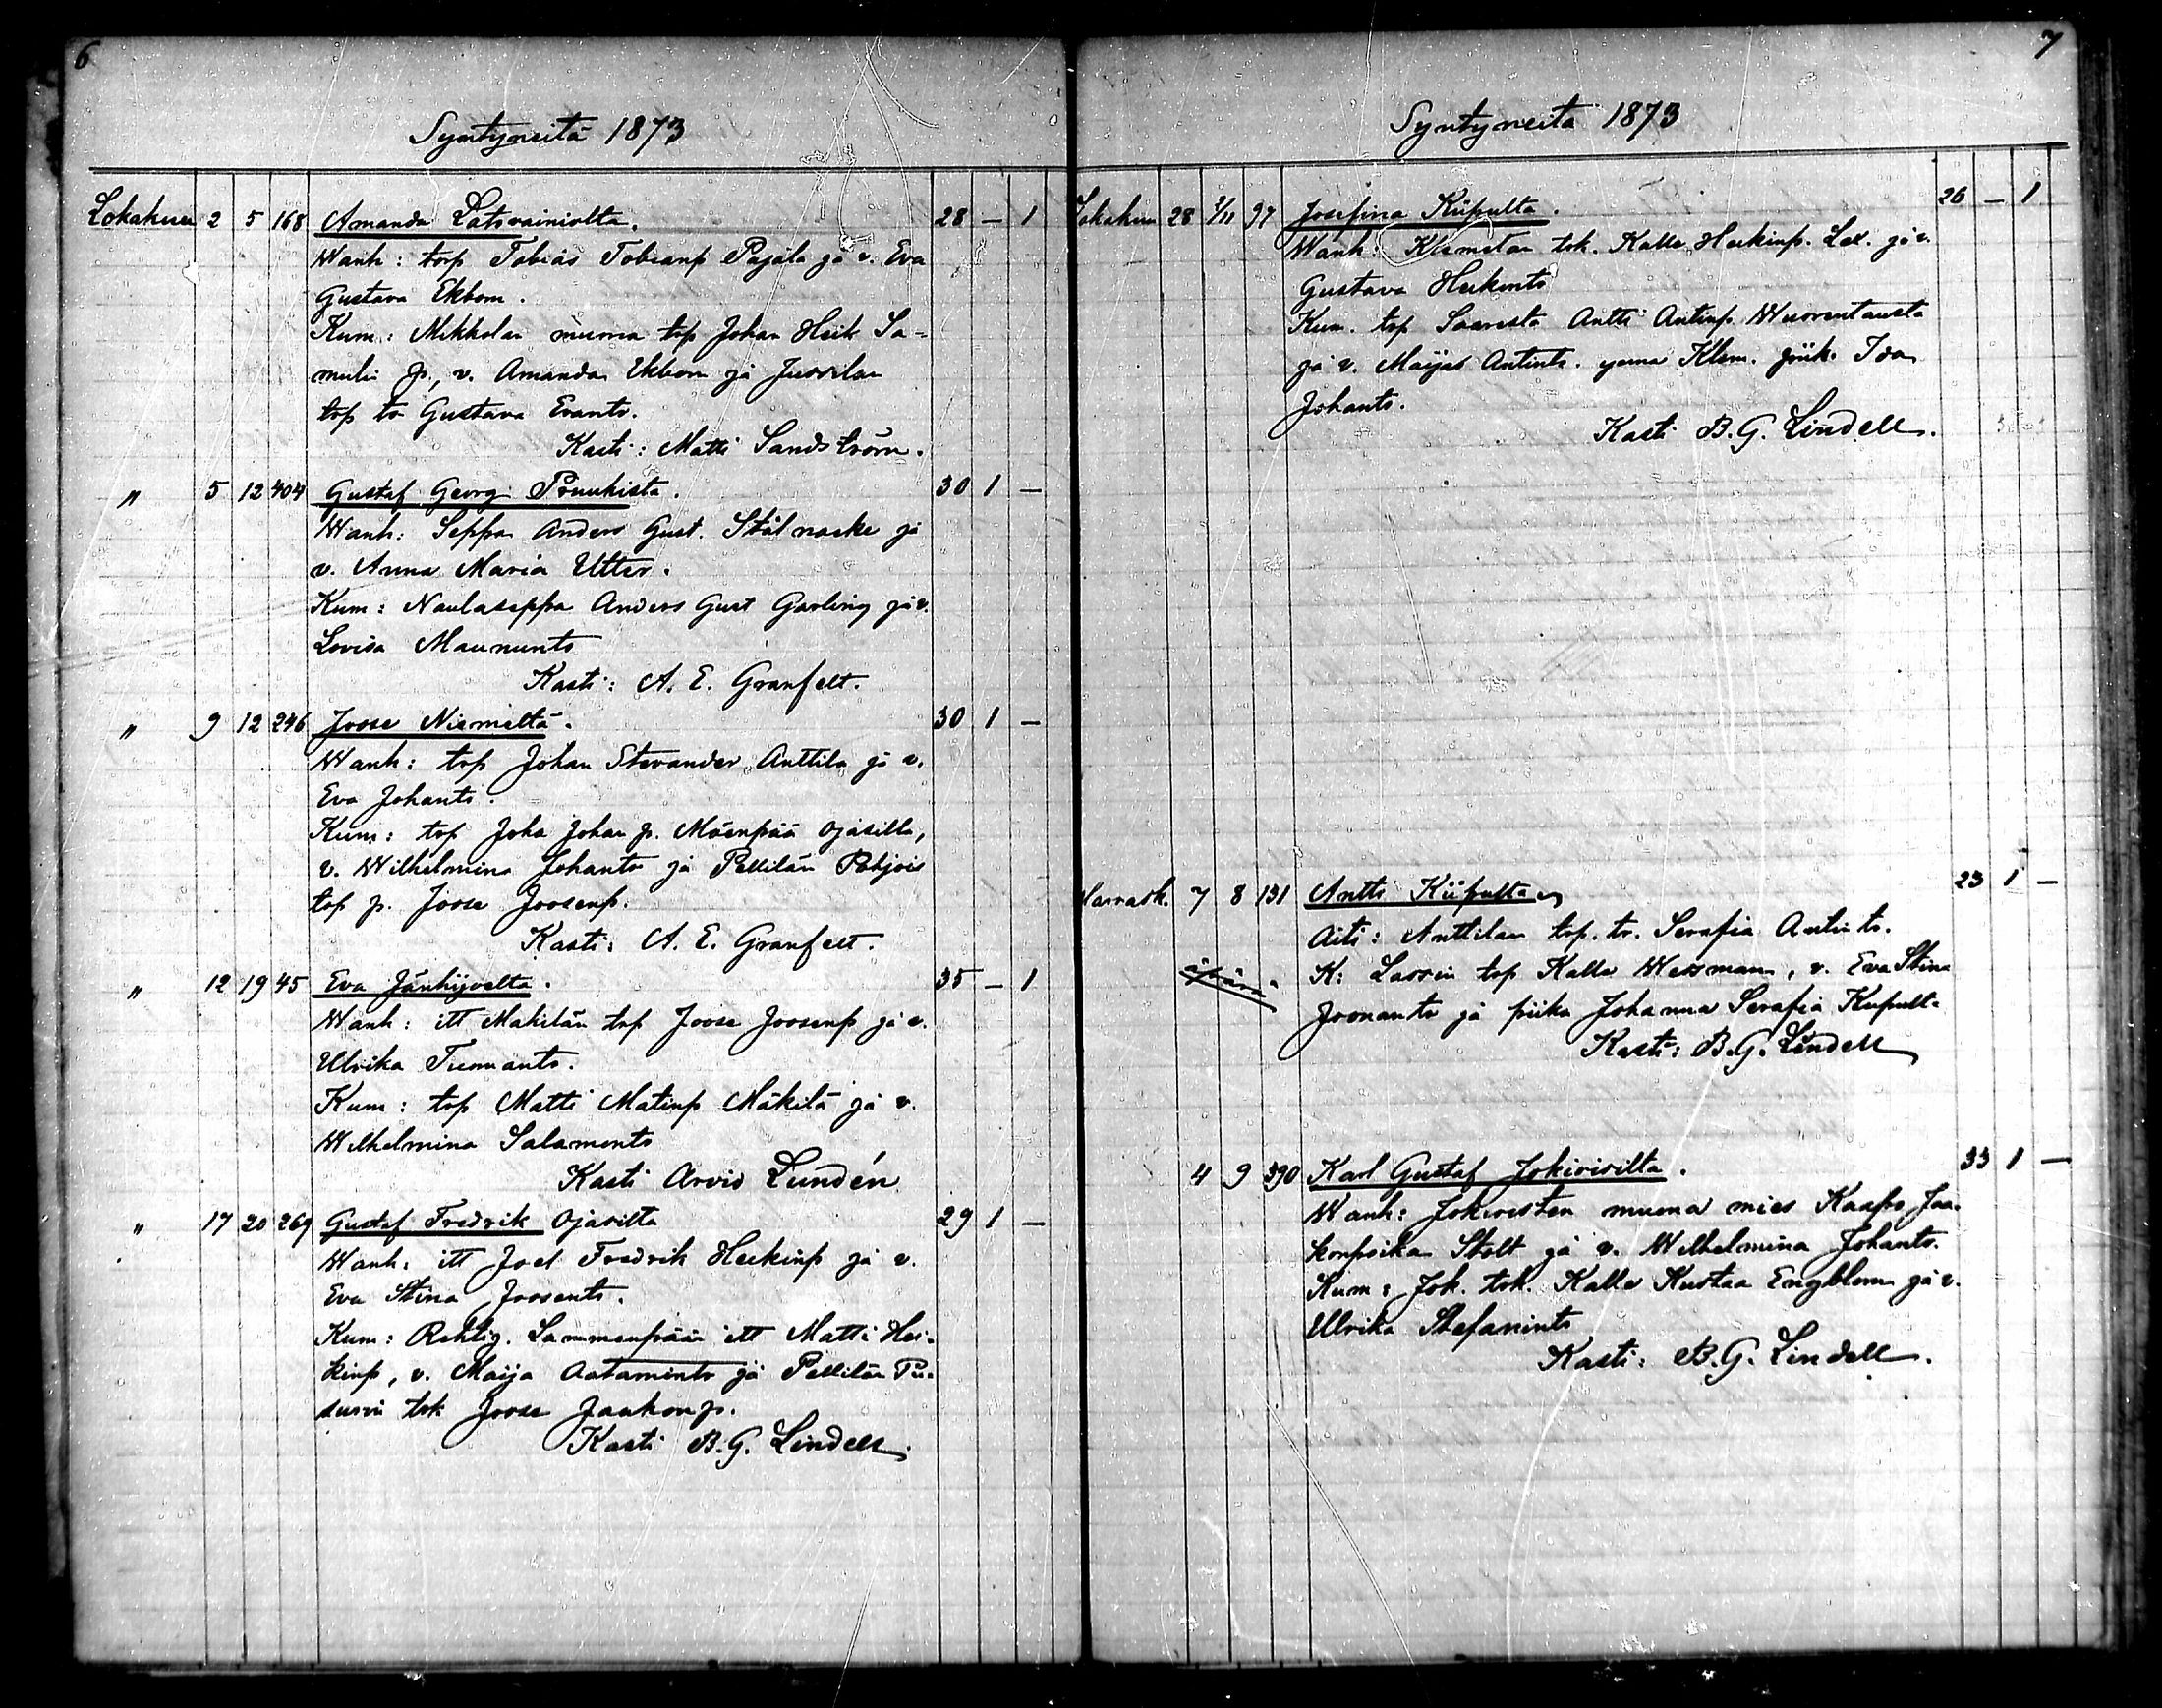 6
Syntyneitä 1873
Lokakuu 2 5 168 Amanda Latovainiolta. 28 — 1
Wanh: torp Tobias Tobianp Pajala ja v. Eva
Gustava Ekbom.
Kum: Mikkolan muona top Johan Heik Sa-
muli p., v. Amanda Ekbom ja Jussilan
top tr Gustava Evantr.
Kasti: Matti Sandström.
" 5 12 404 Gustaf Georg Pruukista. 30 1 —
Wanh: Seppa Anders Gust. Stålnacke ja
v. Anna Maria Utter.
Kum: Naulaseppa Anders Gust Garling ja v.
Lovisa Maununtr
Kasti: A. E. Granfelt.
" 9 12 246 Joose Niemeltä. 30 1 —
Wanh: top Johan Stevander Anttila ja v.
Eva Johantr.
Kum: top Joha Johan p. Mäenpää Ojasilla,
v. Wilhelmina Johantr ja Pellilän Pohjois
top p. Joose Joosenp.
Kasti: A. E. Granfelt.
" 12 19 45 Eva Jänhijoelta. 35 — 1
Wanh: itt Mäkilän top Joose Joosenp ja v.
Ulrika Tuomantr.
Kum: top Matti Matinp Mäkilä ja v.
Wilhelmina Salamontr
Kasti Arvid Lundén
" 17 20 269 Gustaf Fredrik Ojasilta 29 1 —
Wanh: itt Joel Fredrik Heikinp ja v.
Eva Stina Joosentr.
Kum: Rehtig. Sammenpään itt Matti Hei-
kinp, v. Maija Aatamintr ja Pellilän Pu-
surin tok Joose Jaakonp.
Kasti B. G. Lindell.
7
Syntyneitä 1873
Lokakuu 28 2/11 97 Josefina Kiipulta. 26 — 1
Wanh: Klemelan tok. Kalle Heikinp. Lex. ja v.
Gustava Heikintr
Kum. top Saaresta Antti Antinp Wuorentausta
ja v. Maijas Antintr. ynna Klem. piik. Ida
Johantr.
Kasti B. G. Lindell.
Marrask. 7 8 131 Antti Kiipulta 23 1 —
Äiti: Anttilan top. tr. Serafia Antintr.
äpärä K: Lassin top Kalle Wessman, v. Eva Stina
Joonantr ja piika Johanna Serafia Kiipulta
Kasti: B. G. Lindell
4 9 390 Karl Gustaf Jokivirilta. 33 1 —
Wanh: Jokioisten muona mies Kaapo Jaa-
konpoika Stolt ja v. Wilhelmina Johantr.
Kum: Jok. tok. Kalle Kustaa Engblom ja v.
Ulrika Stefanintr
Kasti: B. G. Lindell.